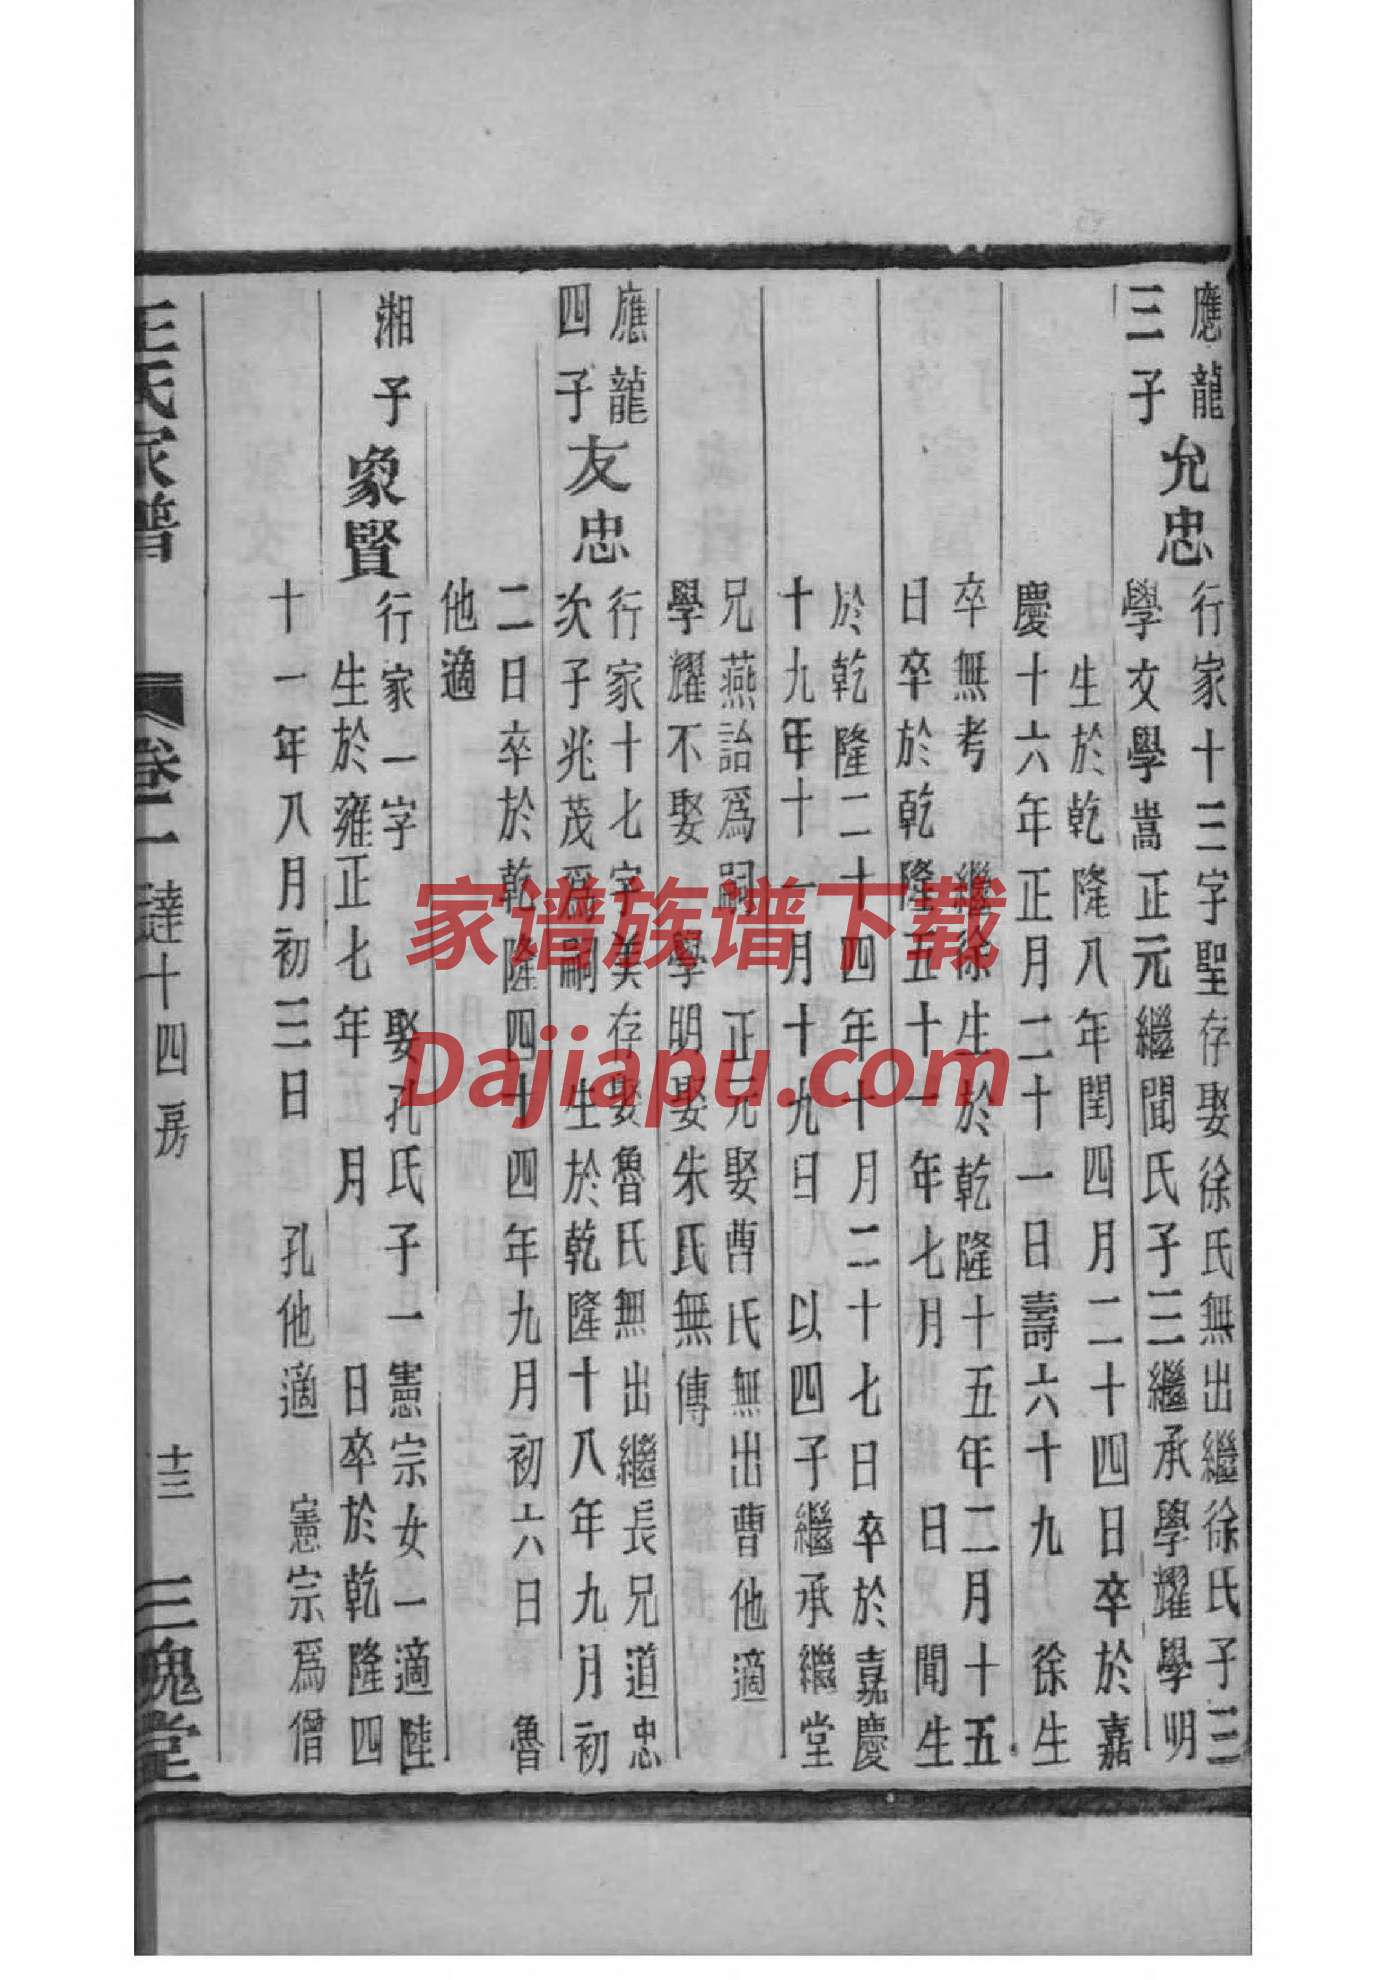 應龍
三子
允忠
行家十三字聖存娶徐氏無出繼徐氏子三
學文學嵩正元繼聞氏子三繼承學耀學明
生於乾隆八年閏四月二十四日卒於嘉
慶十六年正月二十一日壽六十九 徐生
卒無考 繼徐生於乾隆十五年二月十五
日卒於乾隆五十一年七月 日 聞生
於乾隆二十四年十月二十七日卒於嘉慶
十九年十一月十九日 以四子繼承繼堂
兄燕詒爲嗣 正元娶曹氏無出曹他適
學耀不娶 學明娶朱氏無傳
應龍
四子
友忠
行家十七字美存娶魯氏無出繼長兄道忠
次子兆茂爲嗣 生於乾隆十八年九月初
二日卒於乾隆四十四年九月初六日 魯
他適
湘子
象賢
行家一字 娶孔氏子一憲宗女一適陸
生於雍正七年 月 日卒於乾隆四
十一年八月初三日 孔他適 憲宗爲僧
王氏家譜 卷二 達十四房 十三 三槐堂
家谱族谱下载
Dajiapu.com